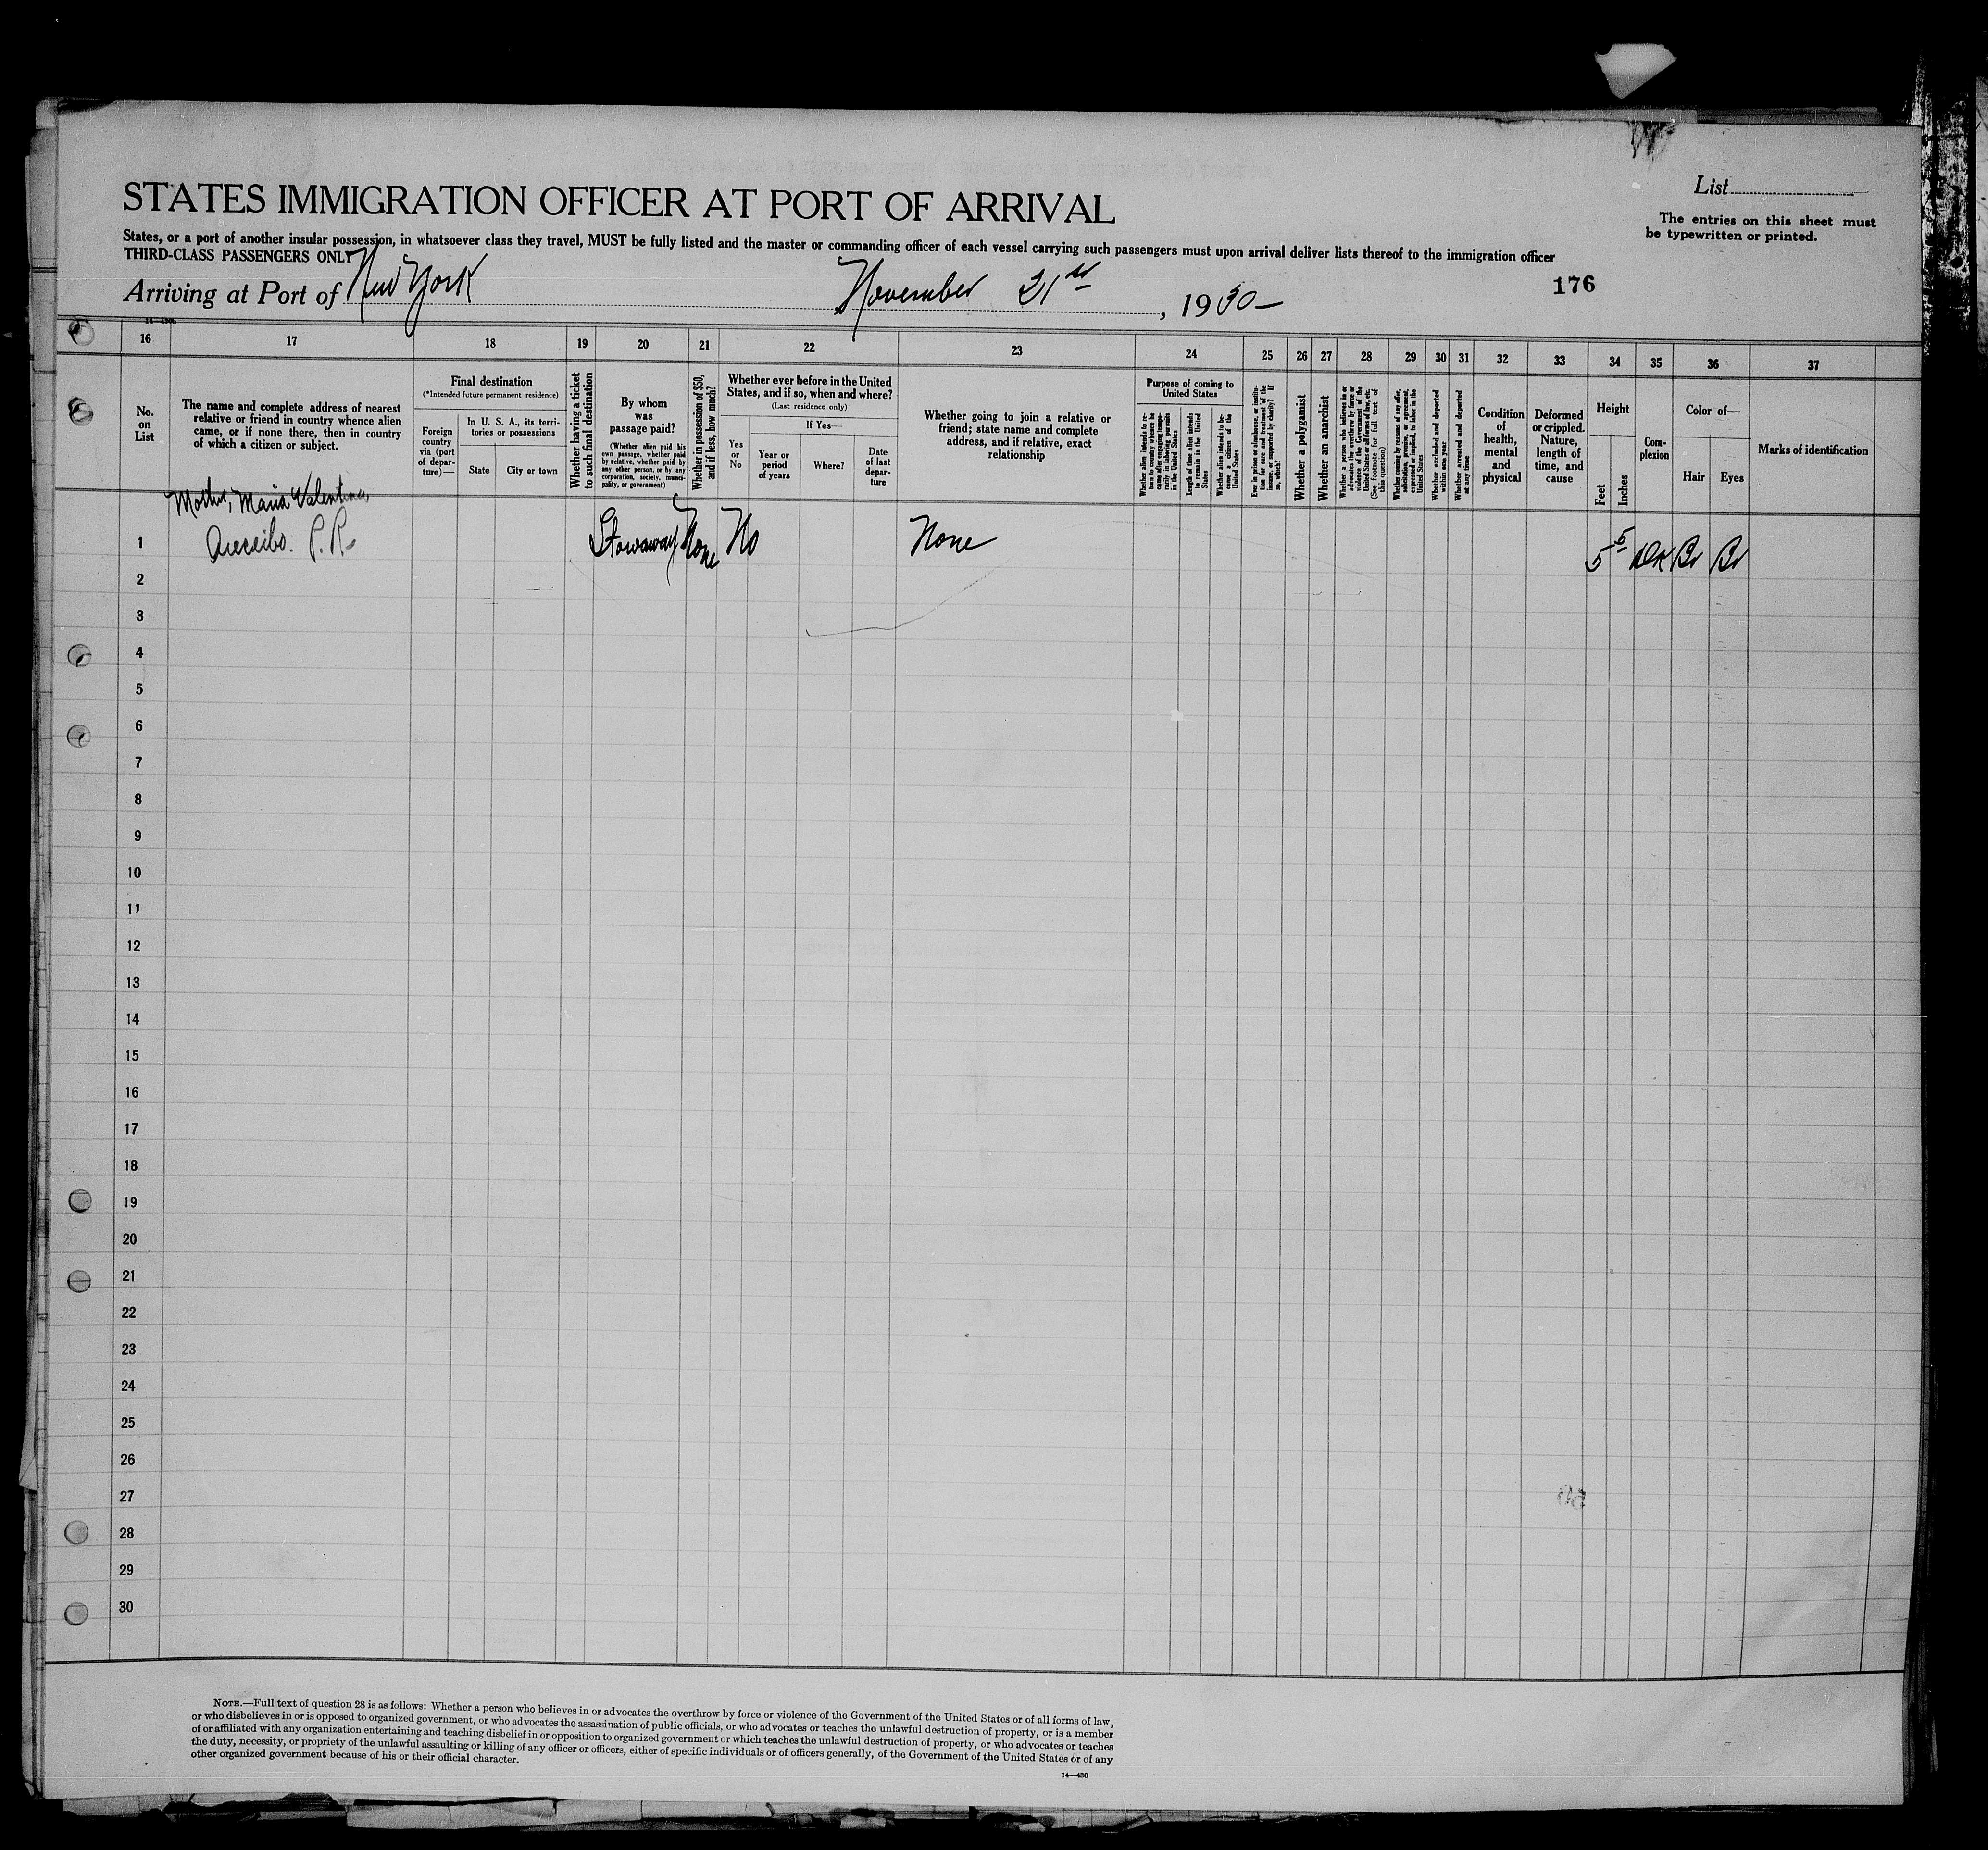 STATES IMMIGRATION OFFICER AT PORT OF ARRIVAL
List
The entries on this sheet must
be typewritten or printed.
States, or a port of another insular possession, in whatsoever class they travel, MUST be fully listed and the master or commanding officer of each vessel carrying such passengers must upon arrival deliver lists thereof to the immigration officer
THIRD-CLASS PASSENGERS ONLY
Arriving at Port of New York November 21st, 1930
176
16 17 18 19 20 21 22 23 24 25 26 27 28 29 30 31 32 33 34 35 36 37
No.
on
List
The name and complete address of nearest
relative or friend in country whence alien
came, or if none there, then in country
of which a citizen or subject.
Final destination
(*Intended future permanent residence)
Foreign
country
via (port
of depar-
ture)—
In U. S. A., its terri-
tories or possessions
State
City or town
Whether having a ticket
to such final destination
By whom
was
passage paid?
(Whether alien paid his
own passage, whether paid
by relative, whether paid by
any other person, or by any
corporation, society, munici-
pality, or government)
Whether in possession of $50,
and if less, how much?
Whether ever before in the United
States, and if so, when and where?
(Last residence only)
Yes
or
No
If Yes—
Year or
period
of years
Where?
Date
of last
depar-
ture
Whether going to join a relative or
friend; state name and complete
address, and if relative, exact
relationship
Purpose of coming to
United States
Whether alien intends to re-
turn to country whence he
came after engaging tempo-
rarily in laboring pursuits
in the United States
Length of time alien intends
to remain in the United
States
Whether alien intends to be-
come a citizen of the
United States
Ever in prison or almshouse, or institu-
tion for care and treatment of the
insane, or supported by charity? If
so, which?
Whether a polygamist
Whether an anarchist
Whether a person who believes in or
advocates the overthrow by force or
violence of the Government of the
United States or all forms of law, etc.
(See footnote for full text of
this question)
Whether coming by reasons of any offer,
solicitation, promise, or agreement,
expressed or implied, to labor in the
United States
Whether excluded and deported
within one year
Whether arrested and deported
at any time
Condition
of
health,
mental
and
physical
Deformed
or crippled.
Nature,
length of
time, and
cause
Height
Feet
Inches
Com-
plexion
Color of—
Hair
Eyes
Marks of identification
Mother, Maria Valentina,
1 Arecibo. P.R. Stowaway None No None 5 5 Dk Br Br
2
3
4
5
6
7
8
9
10
11
12
13
14
15
16
17
18
19
20
21
22
23
24
25
26
27
28
29
30
NOTE.—Full text of question 28 is as follows: Whether a person who believes in or advocates the overthrow by force or violence of the Government of the United States or of all forms of law,
or who disbelieves in or is opposed to organized government, or who advocates the assassination of public officials, or who advocates or teaches the unlawful destruction of property, or is a member
of or affiliated with any organization entertaining and teaching disbelief in or opposition to organized government or which teaches the unlawful destruction of property, or who advocates or teaches
the duty, necessity, or propriety of the unlawful assaulting or killing of any officer or officers, either of specific individuals or of officers generally, of the Government of the United States or of any
other organized government because of his or their official character.
14—430